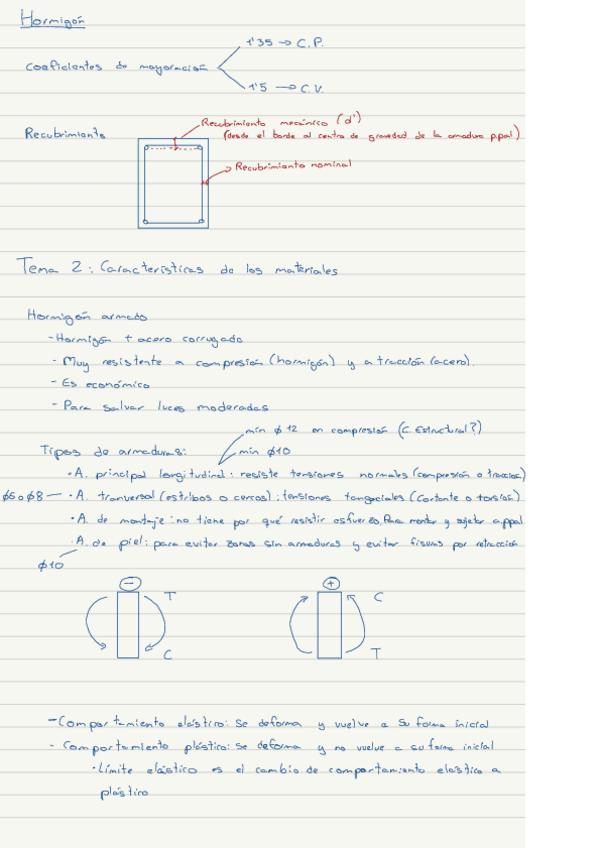 Hormigón
1'35 → C.P.
Coeficientes de mayoración
1'5 → C.V.
Recubrimiento mecánico (d')
Recubrimiento
(desde el borde al centro de gravedad de la armadura ppal)
Recubrimiento nominal
Tema 2: Características de los materiales
Hormigón armado
- Hormigón + acero corrugado
- Muy resistente a compresión (hormigón) y a tracción (acero).
- Es económico
- Para salvar luces moderadas
min φ 12 en compresión (C. Estructural?)
Tipos de armaduras:
min φ10
• A. principal longitudinal: resiste tensiones normales (compresión o tracción)
φ6 o φ8 — • A. tranversal (estribos o cercos): tensiones tangenciales (cortante o torsión)
• A. de montaje: no tiene por qué resistir esfuerzo. Para montar y sujetar a.ppal
• A. de piel: para evitar zonas sin armaduras y evitar fisuras por retracción
φ10
- +
T C
C T
- Comportamiento elástico: se deforma y vuelve a su forma inicial
- Comportamiento plástico: se deforma y no vuelve a su forma inicial
• Límite elástico es el cambio de comportamiento elástico a
plástico